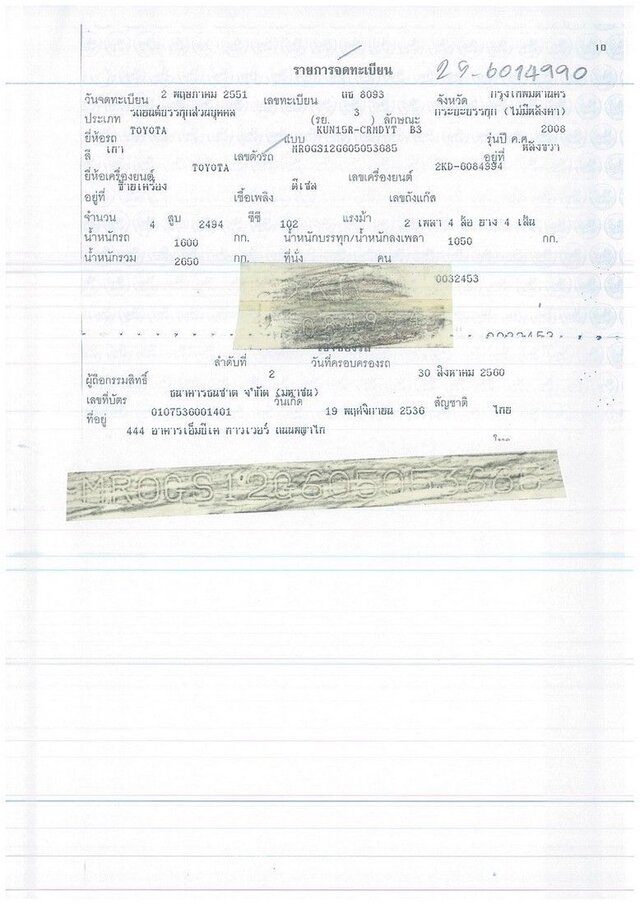 10
รายการจดทะเบียน 29-6014990
วันจดทะเบียน 2 พฤษภาคม 2551 เลขทะเบียน 8093 จังหวัด กรุงเทพมหานคร
ประเภท รถยนต์บรรทุกส่วนบุคคล (รย. 3 ) ลักษณะ กระบะบรรทุก (ไม่มีหลังคา)
ยี่ห้อรถ TOYOTA แบบ KUN15R-CRMDYT B3 รุ่นปี ค.ศ. 2008
สี เทา เลขตัวรถ MR0GS12G605053685 อยู่ที่ หลังขวา
ยี่ห้อเครื่องยนต์ TOYOTA เลขเครื่องยนต์ 2KD-6084994
อยู่ที่ ซ้ายเครื่อง เชื้อเพลิง ดีเซล เลขถังแก๊ส
จำนวน 4 สูบ 2494 ซีซี 102 แรงม้า 2 เพลา 4 ล้อ ยาง 4 เส้น
น้ำหนักรถ 1600 กก. น้ำหนักบรรทุก/น้ำหนักลงเพลา 1050 กก.
น้ำหนักรวม 2650 กก. ที่นั่ง คน
0032453
0032453
ลำดับที่ 2 วันที่ครอบครองรถ 30 สิงหาคม 2560
ผู้ถือกรรมสิทธิ์ ธนาคารธนชาต จำกัด (มหาชน)
เลขที่บัตร 0107536001401 วันเกิด 19 พฤศจิกายน 2536 สัญชาติ ไทย
ที่อยู่ 444 อาคารเอ็มบีเค ทาวเวอร์ ถนนพญาไท
MR0GS12G60505368